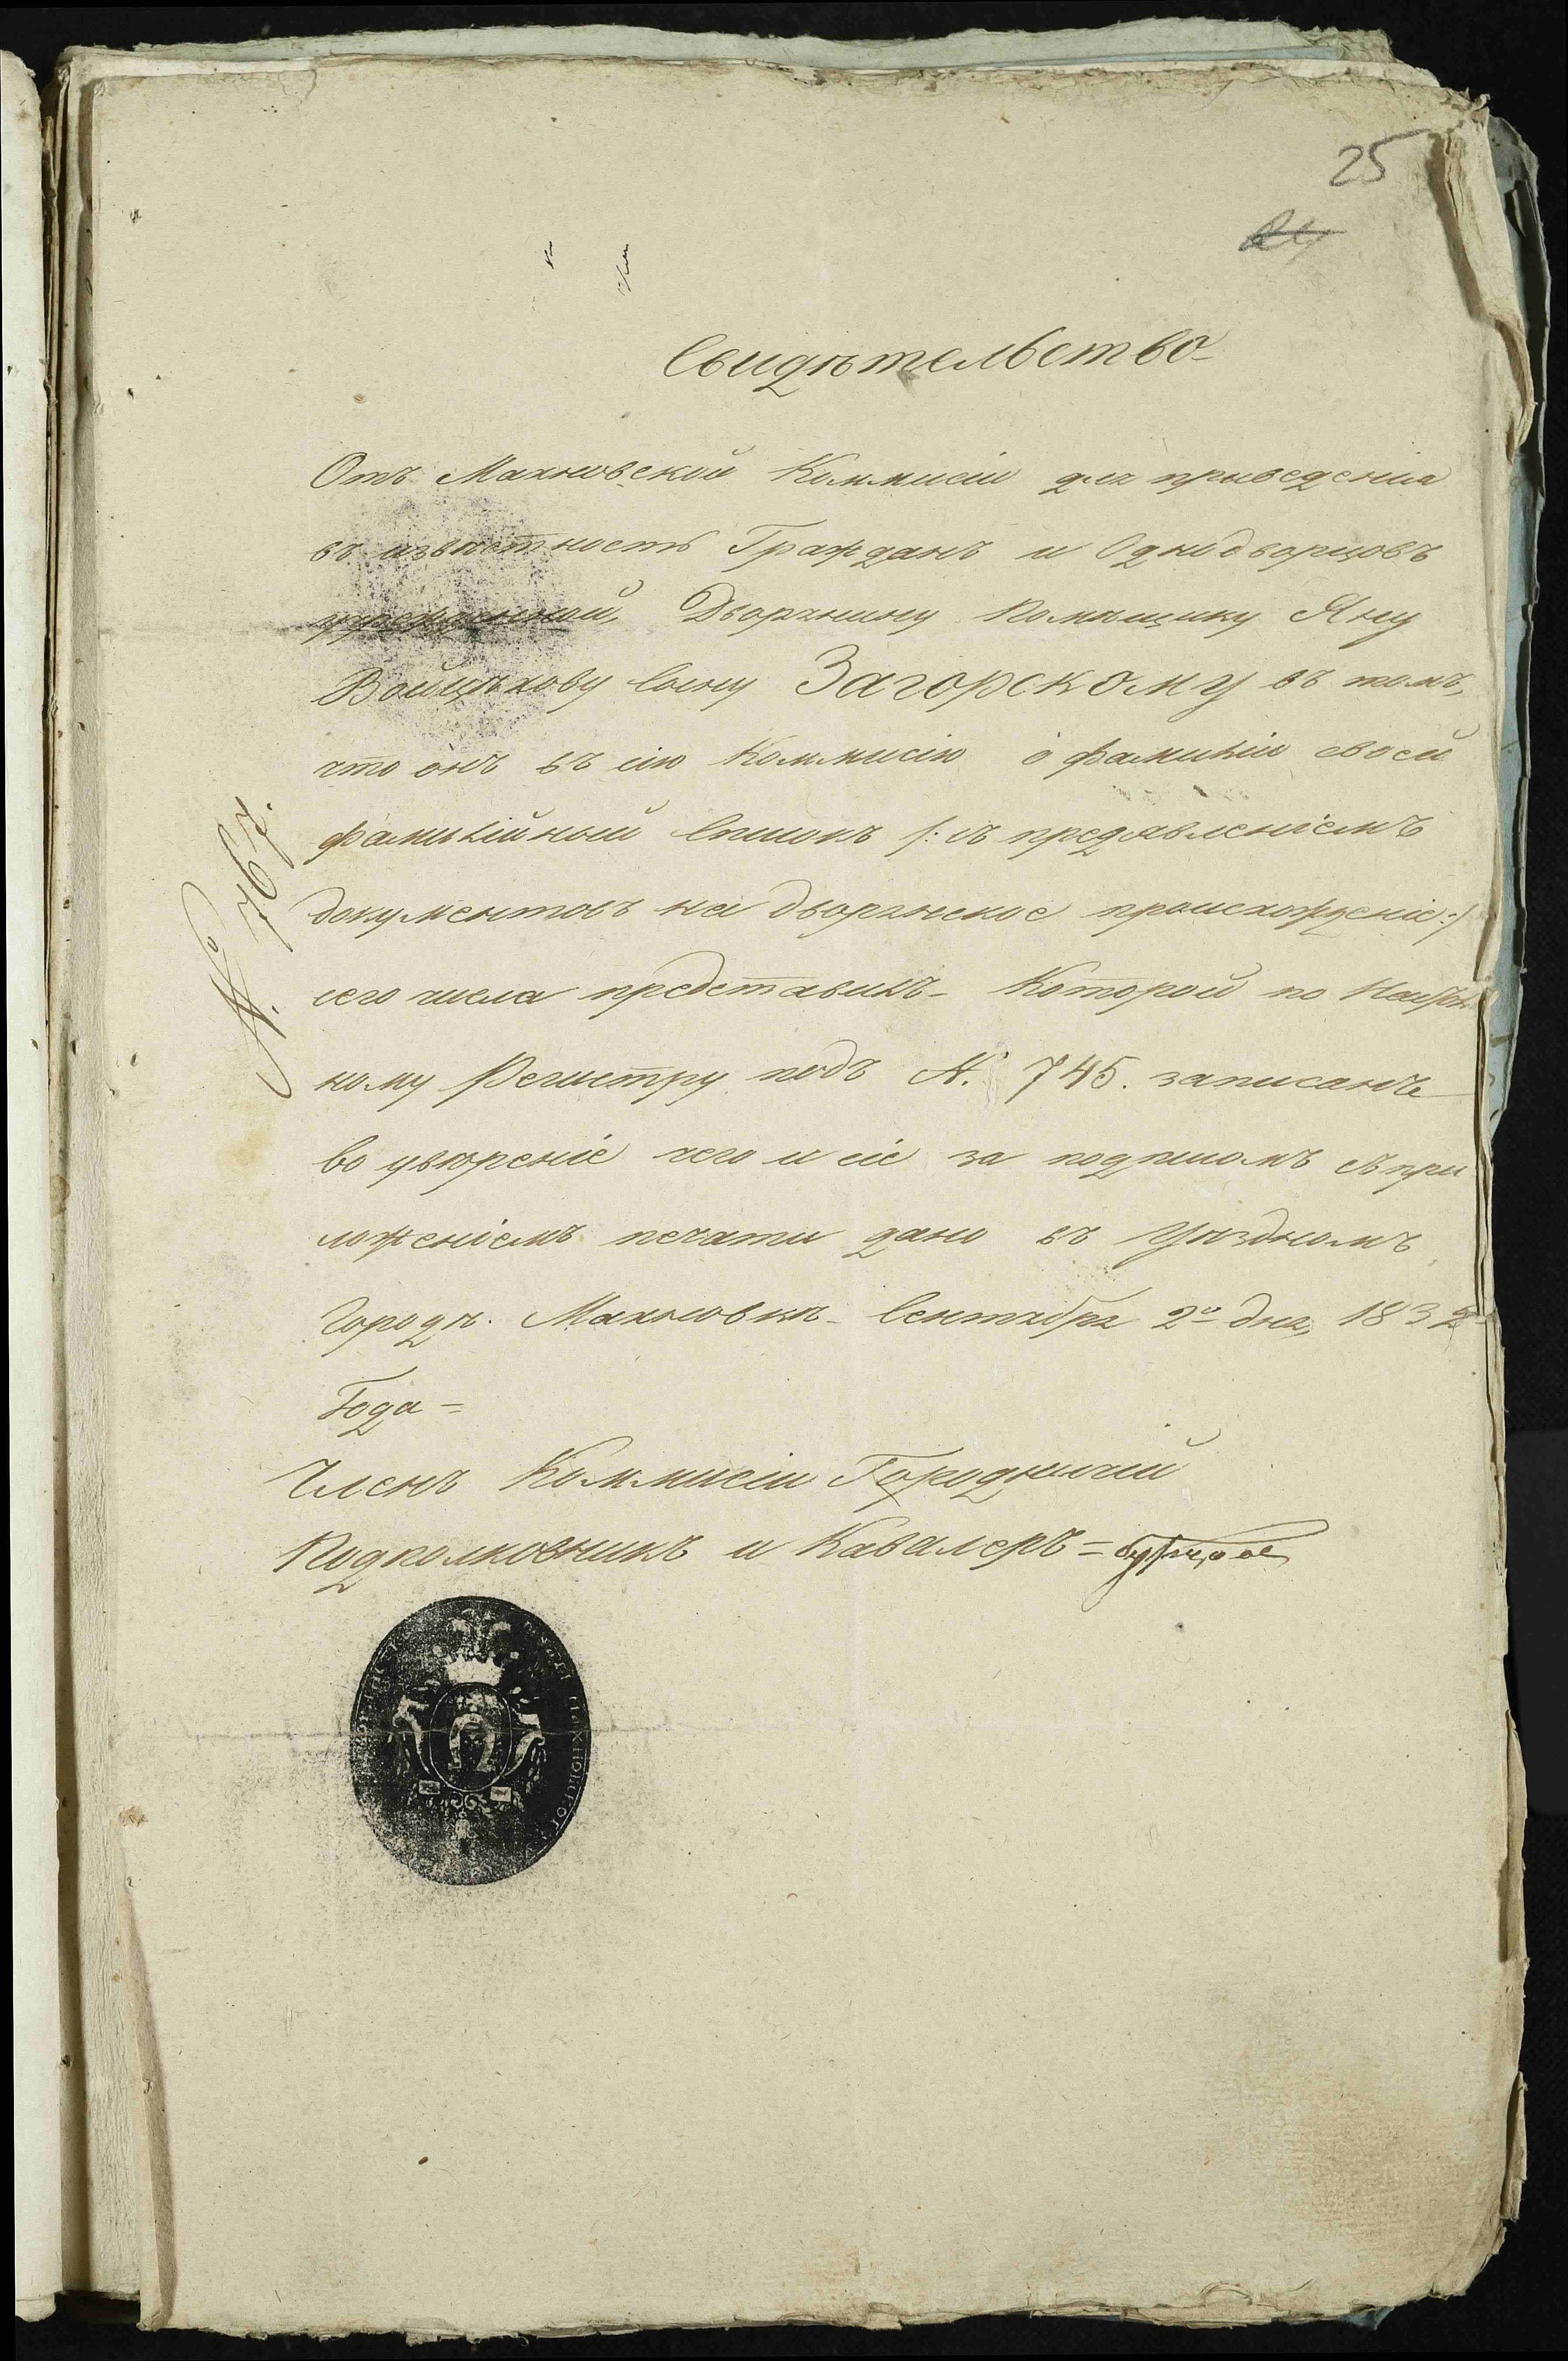 25
24
Свидѣтельство
Отъ Махновской Коммисіи для приведенія
въ извѣстность Гражданъ и Однодворцовъ
учрежденной, Дворянину Помѣщику Яну
Войцѣхову Сыну Загорскому въ томъ,
что онъ въ сію Коммисію о фамиліи своей
фамилійный Списокъ /: съ предявленіемъ
документовъ на дворянское происхожденіе :/
сего числа представилъ - Которой по
ному Регистру подъ №. 745. записанъ
во увѣреніе чего и сіе за подписомъ съ при
ложеніемъ печати дано въ Уѣздномъ
Городѣ. Махновкѣ. Сентября 2го дня, 1832
Года =
Членъ Коммисіи Городничій
Подполковникъ и Кавалеръ =
№